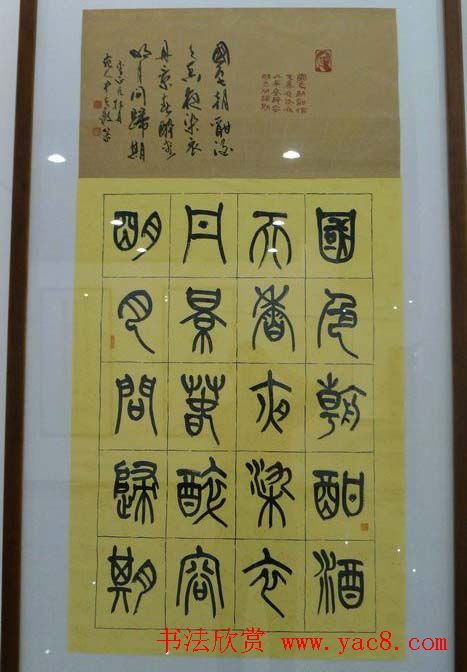 國色朝酣酒
天香夜染衣
丹景春醉容
明月問歸期
國色朝酣酒
天香夜染衣
丹景春醉容
明月問歸期
书法欣赏 www.yac8.com